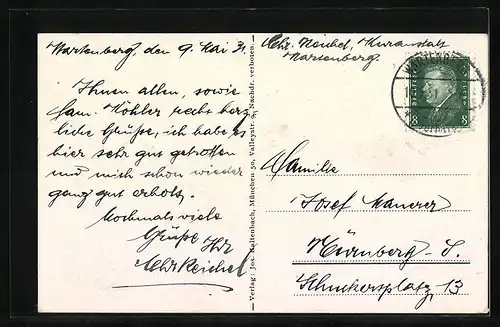 Wartenberg, den 9. Mai 31.
Ihnen allen, sowie
Fam. Köhler recht herz
liche Grüße, ich habe es
hier sehr gut getroffen
und mich schon wieder
ganz gut erholt.
Nochmals viele
Grüße Ihr
Chr. Reichel
Verlag: Jos. Kaltenbach, München 50, Valleystr. Nachdr. verboten.
Chr. Kuranstalt
Wartenberg.
8 8
Familie
Josef Maurer
Nürnberg - S.
Schuckertsplatz 13